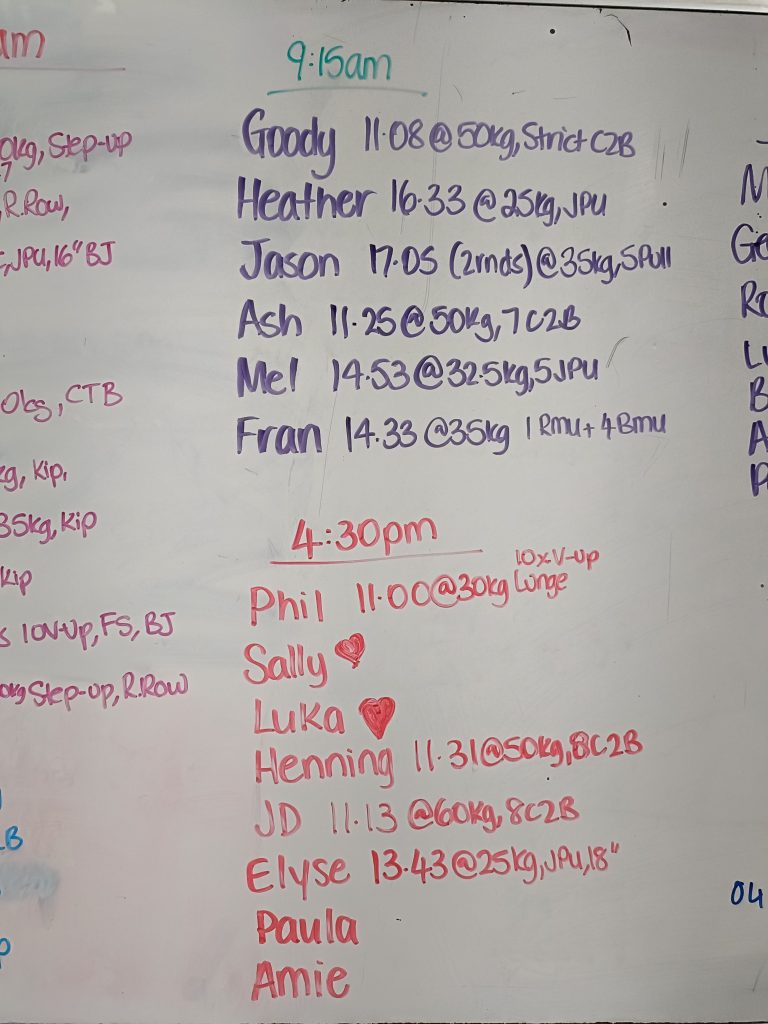 am
0kg, Step-up
7
, R.Row,
, JPU, 16" BJ
0kg, CTB
kg, Kip,
35kg, Kip
Kip
s 10V-Up, FS, BJ
0kg Step-up, R.Row
B
9:15am
Goody 11.08@50kg, Strict C2B
Heather 16.33@25kg, JPU
Jason 17.05 (2rnds)@35kg, 5Pull
Ash 11.25@50kg, 7 C2B
Mel 14.53@32.5kg, 5JPU
Fran 14.33@35kg 1 Rmu + 4Bmu
4:30pm
10xV-up
Phil 11.00@30kg Lunge
Sally ♥
Luka ♥
Henning 11.31@50kg, 8C2B
JD 11.13@60kg, 8C2B
Elyse 13.43@25kg, JPU, 18"
Paula
Amie
M
Ge
Ro
Lu
B
A
P
04